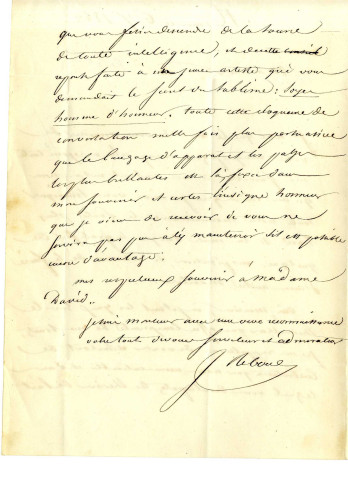 que vous fesiez descendre de la source
de toute intelligence, et de cette
reponse faite à un jeune artiste qui vous
demandait le secret du sublime : soyez
homme d'honneur. toute cette eloquence de
conversation mille fois plus persuasive
que le langage d'apparat et les pages
les plus brillantes est bien fixée dans
mon souvenir et certes l'insigne honneur
que je viens de recevoir de vous ne
servira pas peu à l'y maintenir s'il est possible
encore d'avantage.
mes respectueux souvenirs à madame
David..
je suis monsieur avec une vive reconnaissance
votre tout devoué serviteur et admirateur
J Reboul